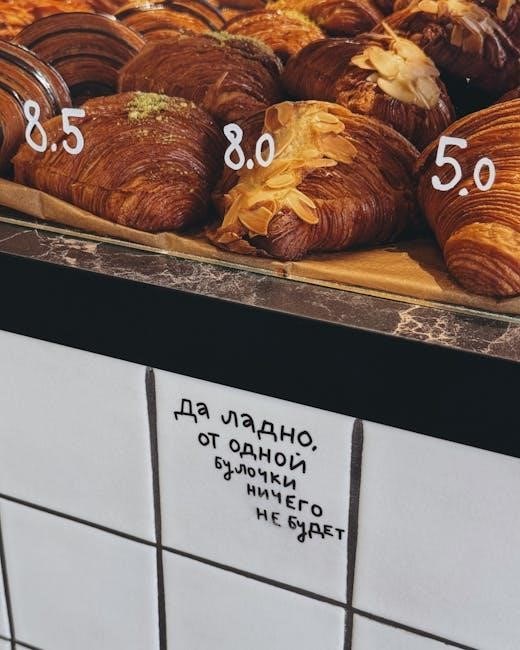 8.5
8.0
5.0
Да ладно,
от одной
булочки
ничего
не будет